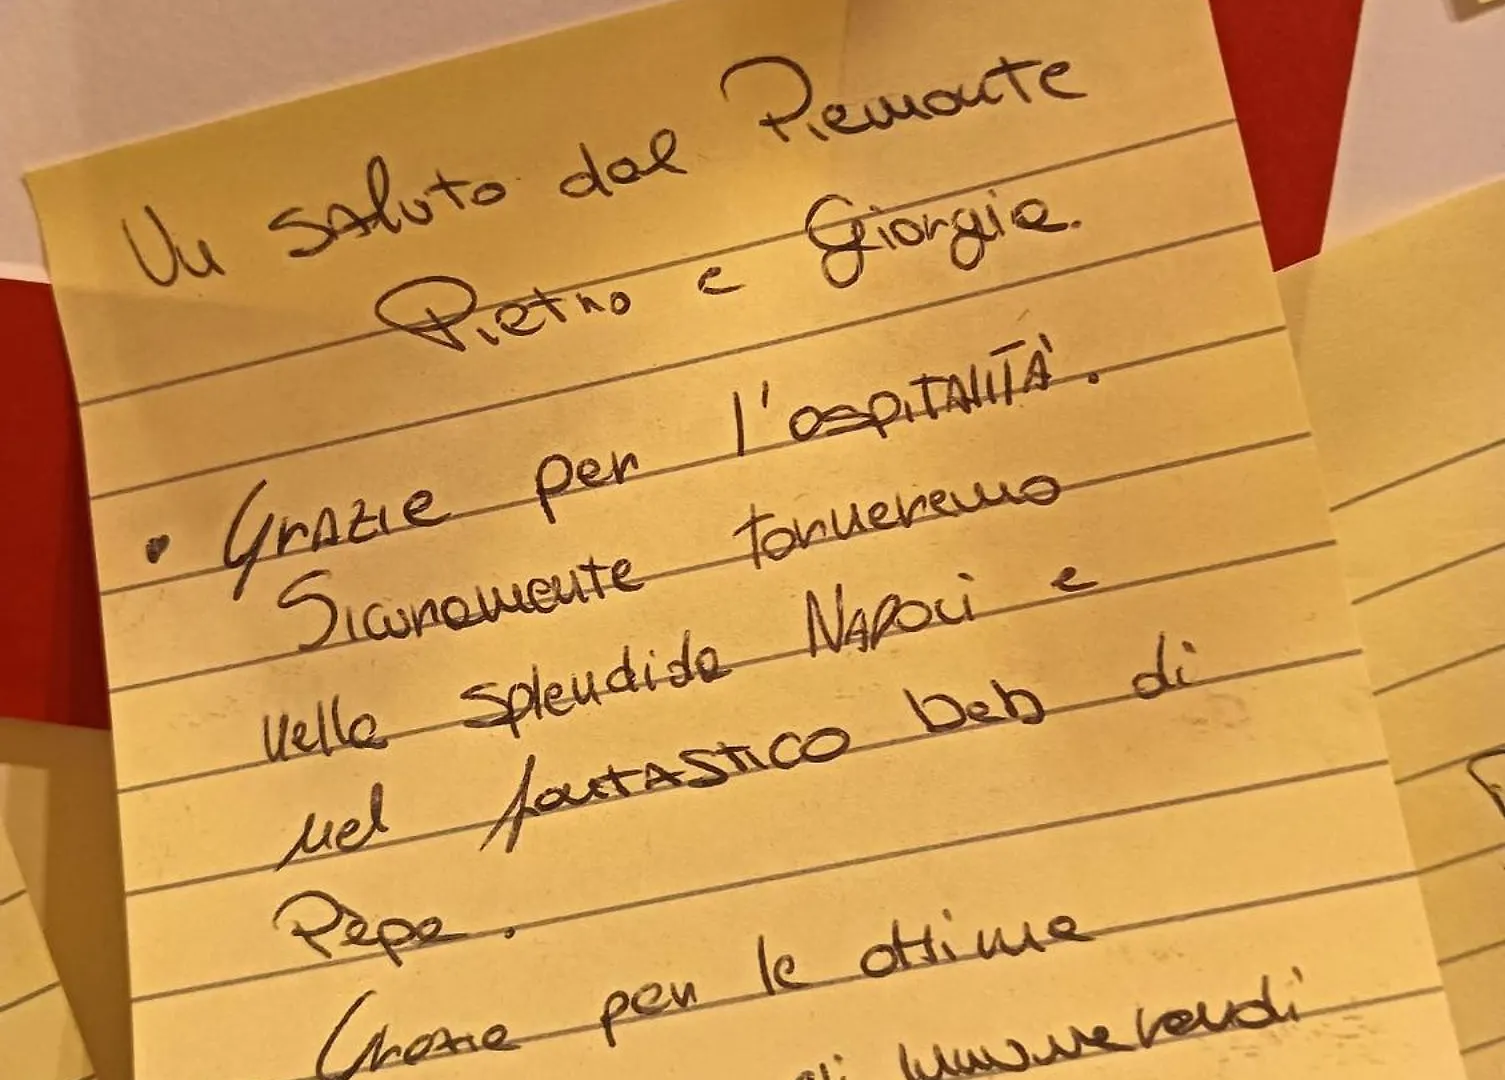 Un saluto dal Piemonte
Pietro e Giorgia.
• Grazie per l'OSPITALITÀ.
Sicuramente torneremo
nella splendida NAPOLI e
nel fantASTICO beb di
Pepe.
Grazie per le ottime